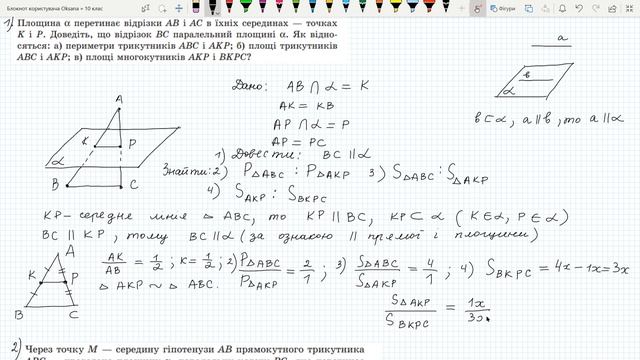 Блокнот користувача Oksana » 10 клас
Фігури
1) Площина α перетинає відрізки AB і AC в їхніх серединах — точках
K і P. Доведіть, що відрізок BC паралельний площині α. Як відно-
сяться: а) периметри трикутників ABC і AKP; б) площі трикутників
ABC і AKP; в) площі многокутників AKP і BKPC?
a
b
α
b⊂α, a∥b, то a∥α
Дано: AB ∩ α = K
AK = KB
AP ∩ α = P
AP = PC
1) Довести: BC ∥ α
Знайти: 2) P△ABC : P△AKP 3) S△ABC : S△AKP
4) SAKP : SBKPC
A
K
P
α
B
C
KP – середне линия △ ABC, то KP ∥ BC, KP ⊂ α (K∈α, P∈α)
BC ∥ KP, тому BC ∥ α (за ознакою ∥ прямої і площини)
A
K
P
B
C
AK/AB = 1/2; K = 1/2; 2) P△ABC/P△AKP = 2/1; 3) S△ABC/S△AKP = 4/1; 4) SBKPC = 4x – 1x = 3x
△ AKP ~ △ ABC.
S△AKP/SBKPC = 1x/3x
2) Через точку M — середину гіпотенузи AB прямокутного трикутника